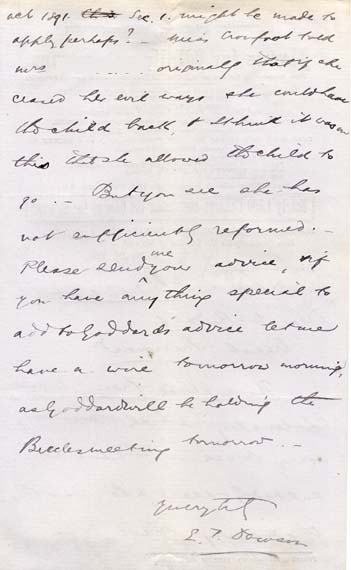 act 1891. this Sec. 1. might be made to
apply perhaps? – Miss Crowfoot told
mrs ........ originally that if she
ceased her evil ways she could have
the child back, & I think it was on
this that she allowed the child to
go. – But you see she has
not sufficiently reformed. –
Please send me your advice, & if
you have anything special to
add to Goddard's advice let me
have a wire tomorrow morning,
as Goddard will be holding the
Beccles meeting tomorrow. –
E. T. Dowson